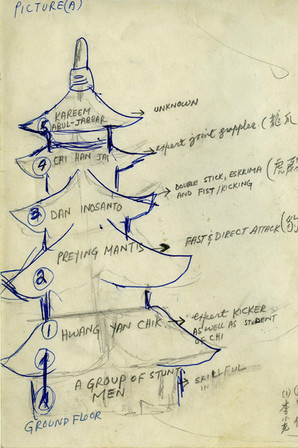 PICTURE(A)
5
KAREEM
ABUL-JABBAR
UNKNOWN
4
CHI HAN JAI
expert joint grappler (
3
DAN INOSANTO
DOUBLE STICK, ESKRIMA
AND FIST/KICKING
(虎
PREYING MANTIS
FAST & DIRECT ATTACK (
2
1
HWANG YAN CHIK
expert KICKER
AS WELL AS STUDENT
OF CHI
A GROUP OF STUNT
MEN
SKILLFUL
IN
GROUND FLOOR
(1)
李
小